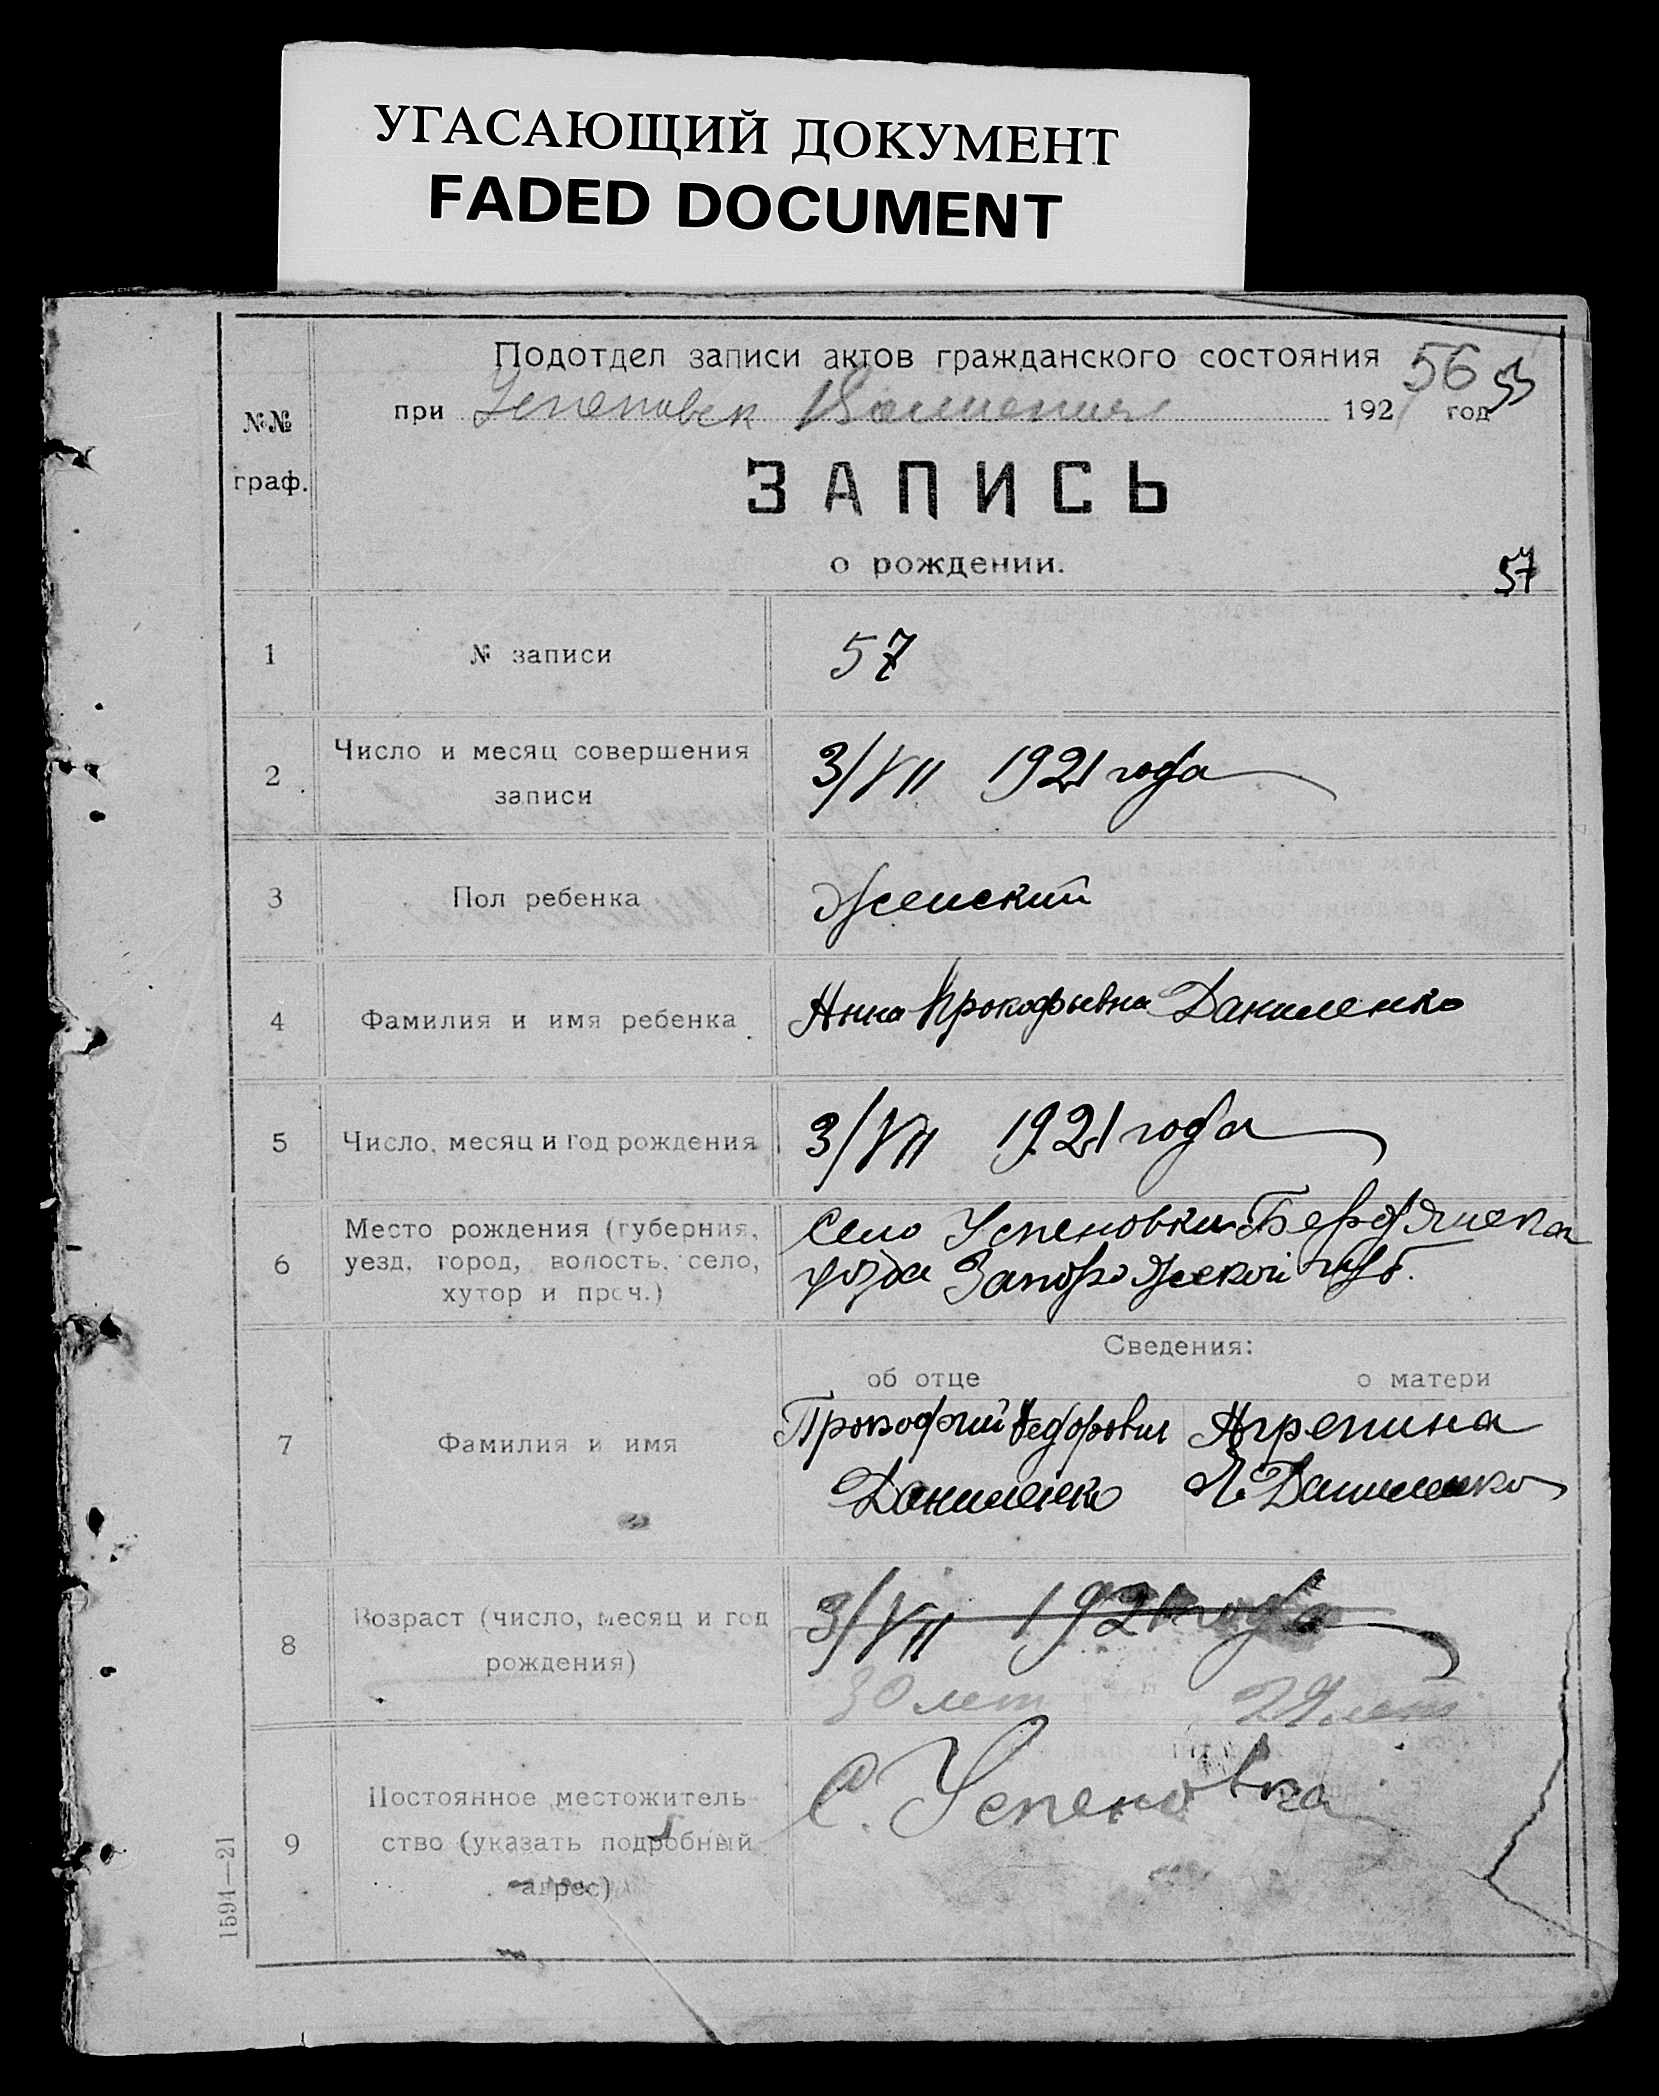 УГАСАЮЩИЙ ДОКУМЕНТ
FADED DOCUMENT
Подотдел записи актов гражданского состояния
56 55
при Успеновск 192 год
№№
граф.
ЗАПИСЬ
о рождении.
57
1 № записи 57
2 Число и месяц совершения записи 3/VII 1921 года
3 Пол ребенка Женский
4 Фамилия и имя ребенка Анна Прокофьевна Даниленко
5 Число, месяц и год рождения 3/VII 1921 года
6 Место рождения (губерния, Село Успеновки Бердянска
уезд, город, волость, село, уезда Запорожской губ.
хутор и проч.)
Сведения:
об отце о матери
7 Фамилия и имя Прокофий Федорович Агрепина
Даниленко Я. Даниленко
8 Возраст (число, месяц и год рождения) 3/VII 1921 года
30 лет 24 лет
9 Постоянное местожитель- С. Успеновка
ство (указать подробный
адрес)
1594—21